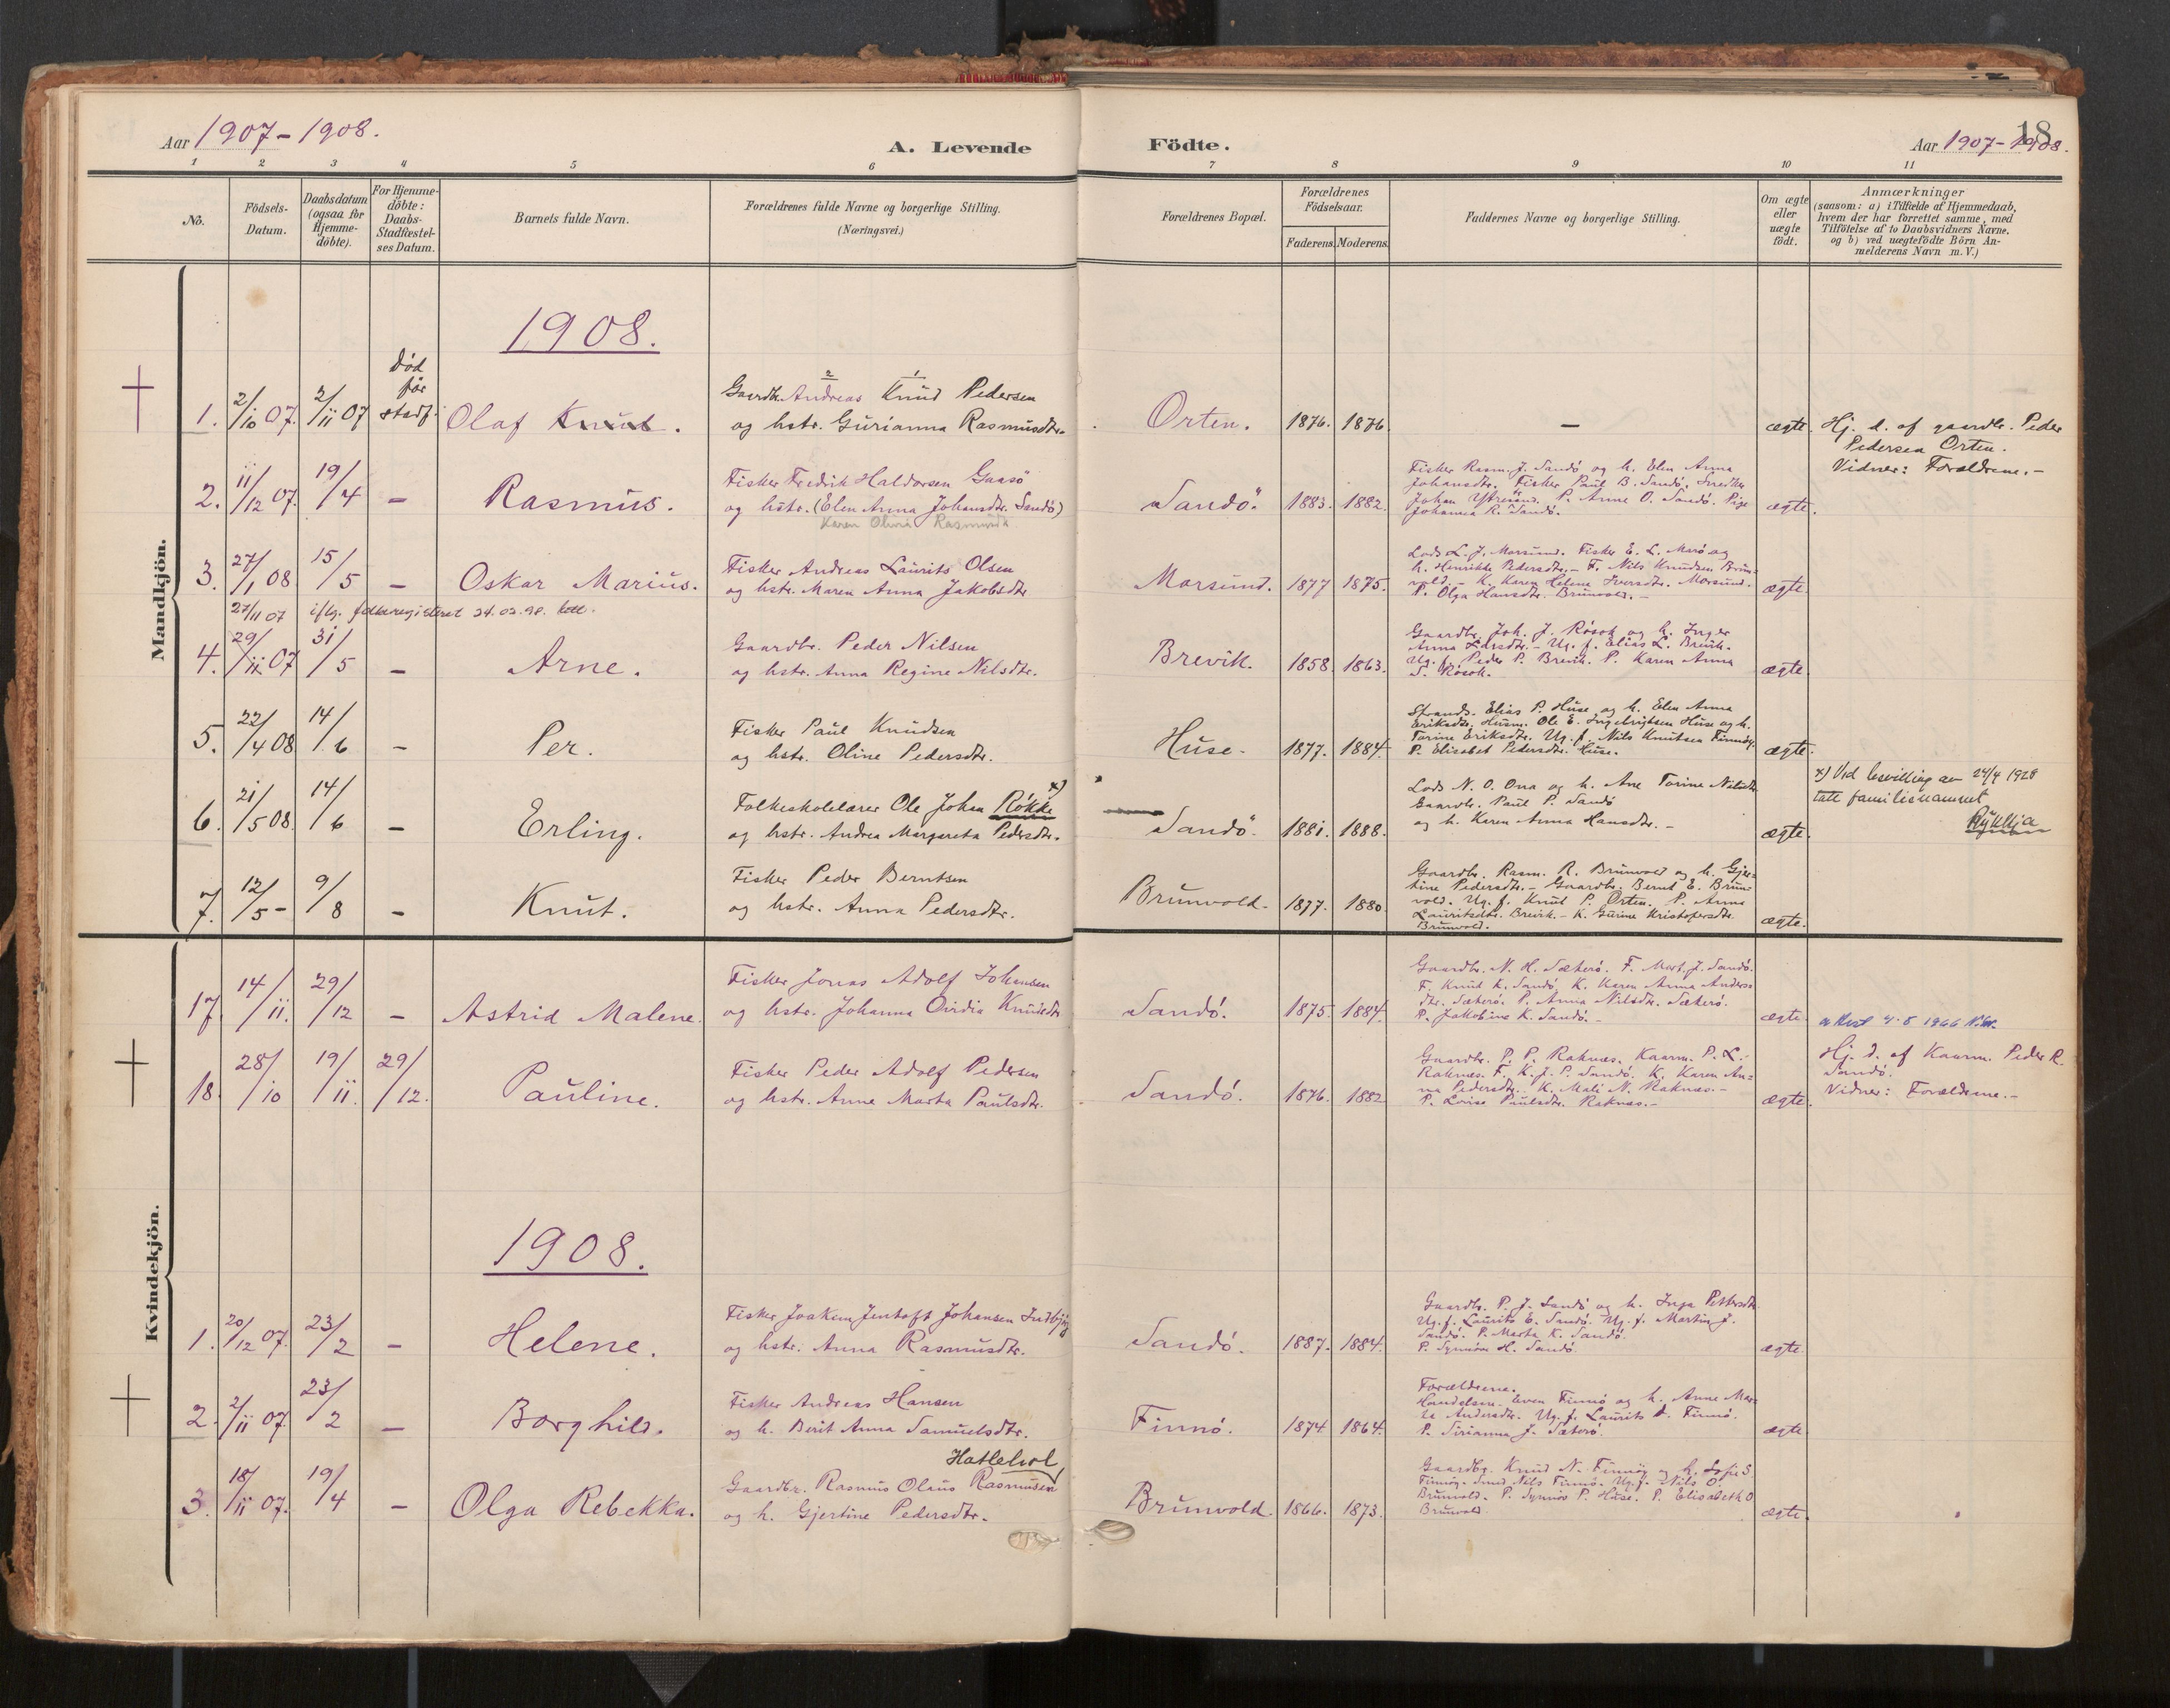 Aar 1907-1908.
A. Levende
Födte.
Aar 1907-1908.
18
1 2 3 4 5 6 7 8 9 10 11
No.
Födsels-
Datum.
Daabsdatum
(ogsaa for
Hjemme-
döbte).
For Hjemme-
döbte:
Daabs-
Stadfæstel-
ses Datum.
Barnets fulde Navn.
Forældrenes fulde Navne og borgerlige Stilling.
(Næringsvei.)
Forældrenes Bopæl.
Forældrenes
Födselsaar.
Faderens. Moderens.
Faddernes Navne og borgerlige Stilling.
Om ægte
eller
uægte
födt.
Anmærkninger
(saasom: a) i Tilfælde af Hjemmedaab,
hvem der har forrettet samme, med
Tilföielse af to Daabsvidners Navne,
og b) ved uægtefödte Börn An-
melderens Navn m. V.)
Mandkjön.
1908.
1. 2/10 07. 2/11 07
død
før
stadf.
Olaf Knut.
Gaardbr. Andreas Knud Pedersen
og hstr. Gurianna Rasmusdtr.
Orten. 1876. 1876. — ægte.
Hj. d. af gaardbr. Peder
Pedersen Orten.
Vidner: Forældrene.-
2. 11/12 07. 19/4 - Rasmus.
Fisker Fredrik Haldorsen Gaasö
og hstr. (Elen Anna Johansdtr. Sandö)
Karen Olivia Rasmusdt.
Sandö. 1883. 1882.
Fisker Rasm. J. Sandö og h. Elen Anna
Johansdtr. Fisker Paul B. Sandö. Snedker
Johan P. Anne O. Sandö. Pige
Johanna R. Sandö.
ægte.
3. 27/1 08 15/5 - Oskar Marius.
Fisker Andreas Laurits Olsen
og hstr. Maren Anna Jakobsdtr
Morsund. 1877 1875.
Lods L. J. Morsund. Fisker E. L. Marö og
h. Henrikke Pedersdtr. - F. Nils Knudsen Brun-
vold. - K. Karen Helene Iversdtr. Morsund.
P. Olga Hansdtr. Brunvold. -
ægte.
27/11 07 iflg. folkeregisteret 24.02.98.
4. 29/11 07 31/5 - Arne.
Gaardbr. Peder Nilsen
og hstr. Anna Regine Nilsdtr.
Brevik. 1858. 1863.
Gaardbr. Joh. J. Rösok og h. Inger
Anna Larsdtr. - Ug. f. Elias L. Brevik.
Ug. f. Peder P. Brevik. P. Karen Anna
S. Rösok.
ægte.
5. 22/4 08 14/6 - Per.
Fisker Paul Knudsen
og hstr. Oline Pedersdtr.
Huse. 1877. 1884.
Strands. Elias P. Huse og h. Elen Anna
Eriksdtr. Husm. Ole E. Ingebrigtsen Huse og h.
Torine Eriksdtr. Ug. f. Nils Knutsen Finnöy.
P. Elisabet Pedersdtr. Huse.
ægte.
6. 21/5 08. 14/6 - Erling.
Folkeskolelærer Ole Johan Røkke x)
og hstr. Andrea Margareta Pedersdtr.
Sandö. 1881. 1888.
Lods N. O. Ona og h. Ane Torine Nilsdtr
Gaardbr. Paul P. Sandö
og h. Karen Anna Hansdtr. -
ægte.
x) Ved bevilling av 24/4 1928
tatt familienamnet
Rykkja
7. 12/5 - 9/8 - Knut.
Fisker Peder Berntsen
og hstr. Anna Pedersdtr.
Brunvold. 1877. 1880.
Gaardbr. Rasm. R. Brunvold og h. Gjer-
tine Pedersdtr. - Gaardbr. Bernt E. Brun-
vold. Ug. f. Knut P. Orten. P. Anna
Lauritsdtr. Brevik. - K. Gurine Kristofersdtr.
Brunvold.
ægte.
Kvindekjön.
17. 14/11. 29/12 - Astrid Malene.
Fisker Jonas Adolf Johansen
og hstr. Johanna Ovidia Knudsdtr
Sandö. 1875. 1884.
Gaardbr. N. H. Sæterö. F. Mart. J. Sandö.
F. Knut K. Sandö. K. Karen Anna Anders-
dtr. Sæterö. P. Anna Nilsdtr. Sæterö.
P. Jakobine K. Sandö. -
ægte.
attest 4-8 1966
18. 28/10 19/11. 29/12. Pauline.
Fisker Peder Adolf Pedersen
og hstr. Anne Marta Paulsdtr.
Sandö. 1876. 1882
Gaardbr. P. P. Raknæs. Kaarm. P. L.
Raknæs. F. K. J. P. Sandö. K. Karen An-
na Pedersdtr. K. Mali N. Raknæs. -
P. Lovise Paulsdtr. Raknæs. -
ægte.
Hj. d. af Kaarm. Peder R.
Sandö.
Vidner: Forældrene. -
1908.
1. 20/12 07. 23/2 - Helene.
Fisker Joakim Jentoft Johansen
og hstr. Anna Rasmusdtr.
Sandö. 1887. 1884.
Gaardbr. P. J. Sandö og h. Inga Pettersdtr.
Ug. f. Laurits E. Sandö. Ug. f. Martin J.
Sandö. P. Marta K. Sandö.
P. Synnöve H. Sandö.
ægte.
2. 2/11 07. 23/2 - Borghild.
Fisker Andreas Hansen
og h. Berit Anna Samuelsdtr.
Finnö. 1874 1864.
Forældrene.
Handelsm. Even Finnö og h. Anne Mar-
ta Andersdtr. Ug. f. Laurits A. Finnö.
P. Sirianna J. Sæterö.
ægte
Hatlehol
3. 18/11 07. 19/4 - Olga Rebekka.
Gaardbr. Rasmus Olaus Rasmusen
og h. Gjertine Pedersdtr.
Brunvold. 1866. 1873.
Gaardbr. Knud N. Finnöy og h. Sofie S.
Finnöy. Smed Nils Finnö. Ug. f. Nils O.
Brunvold. P. Synnöv P. Huse. P. Elisabeth O
Brunvold.
ægte.